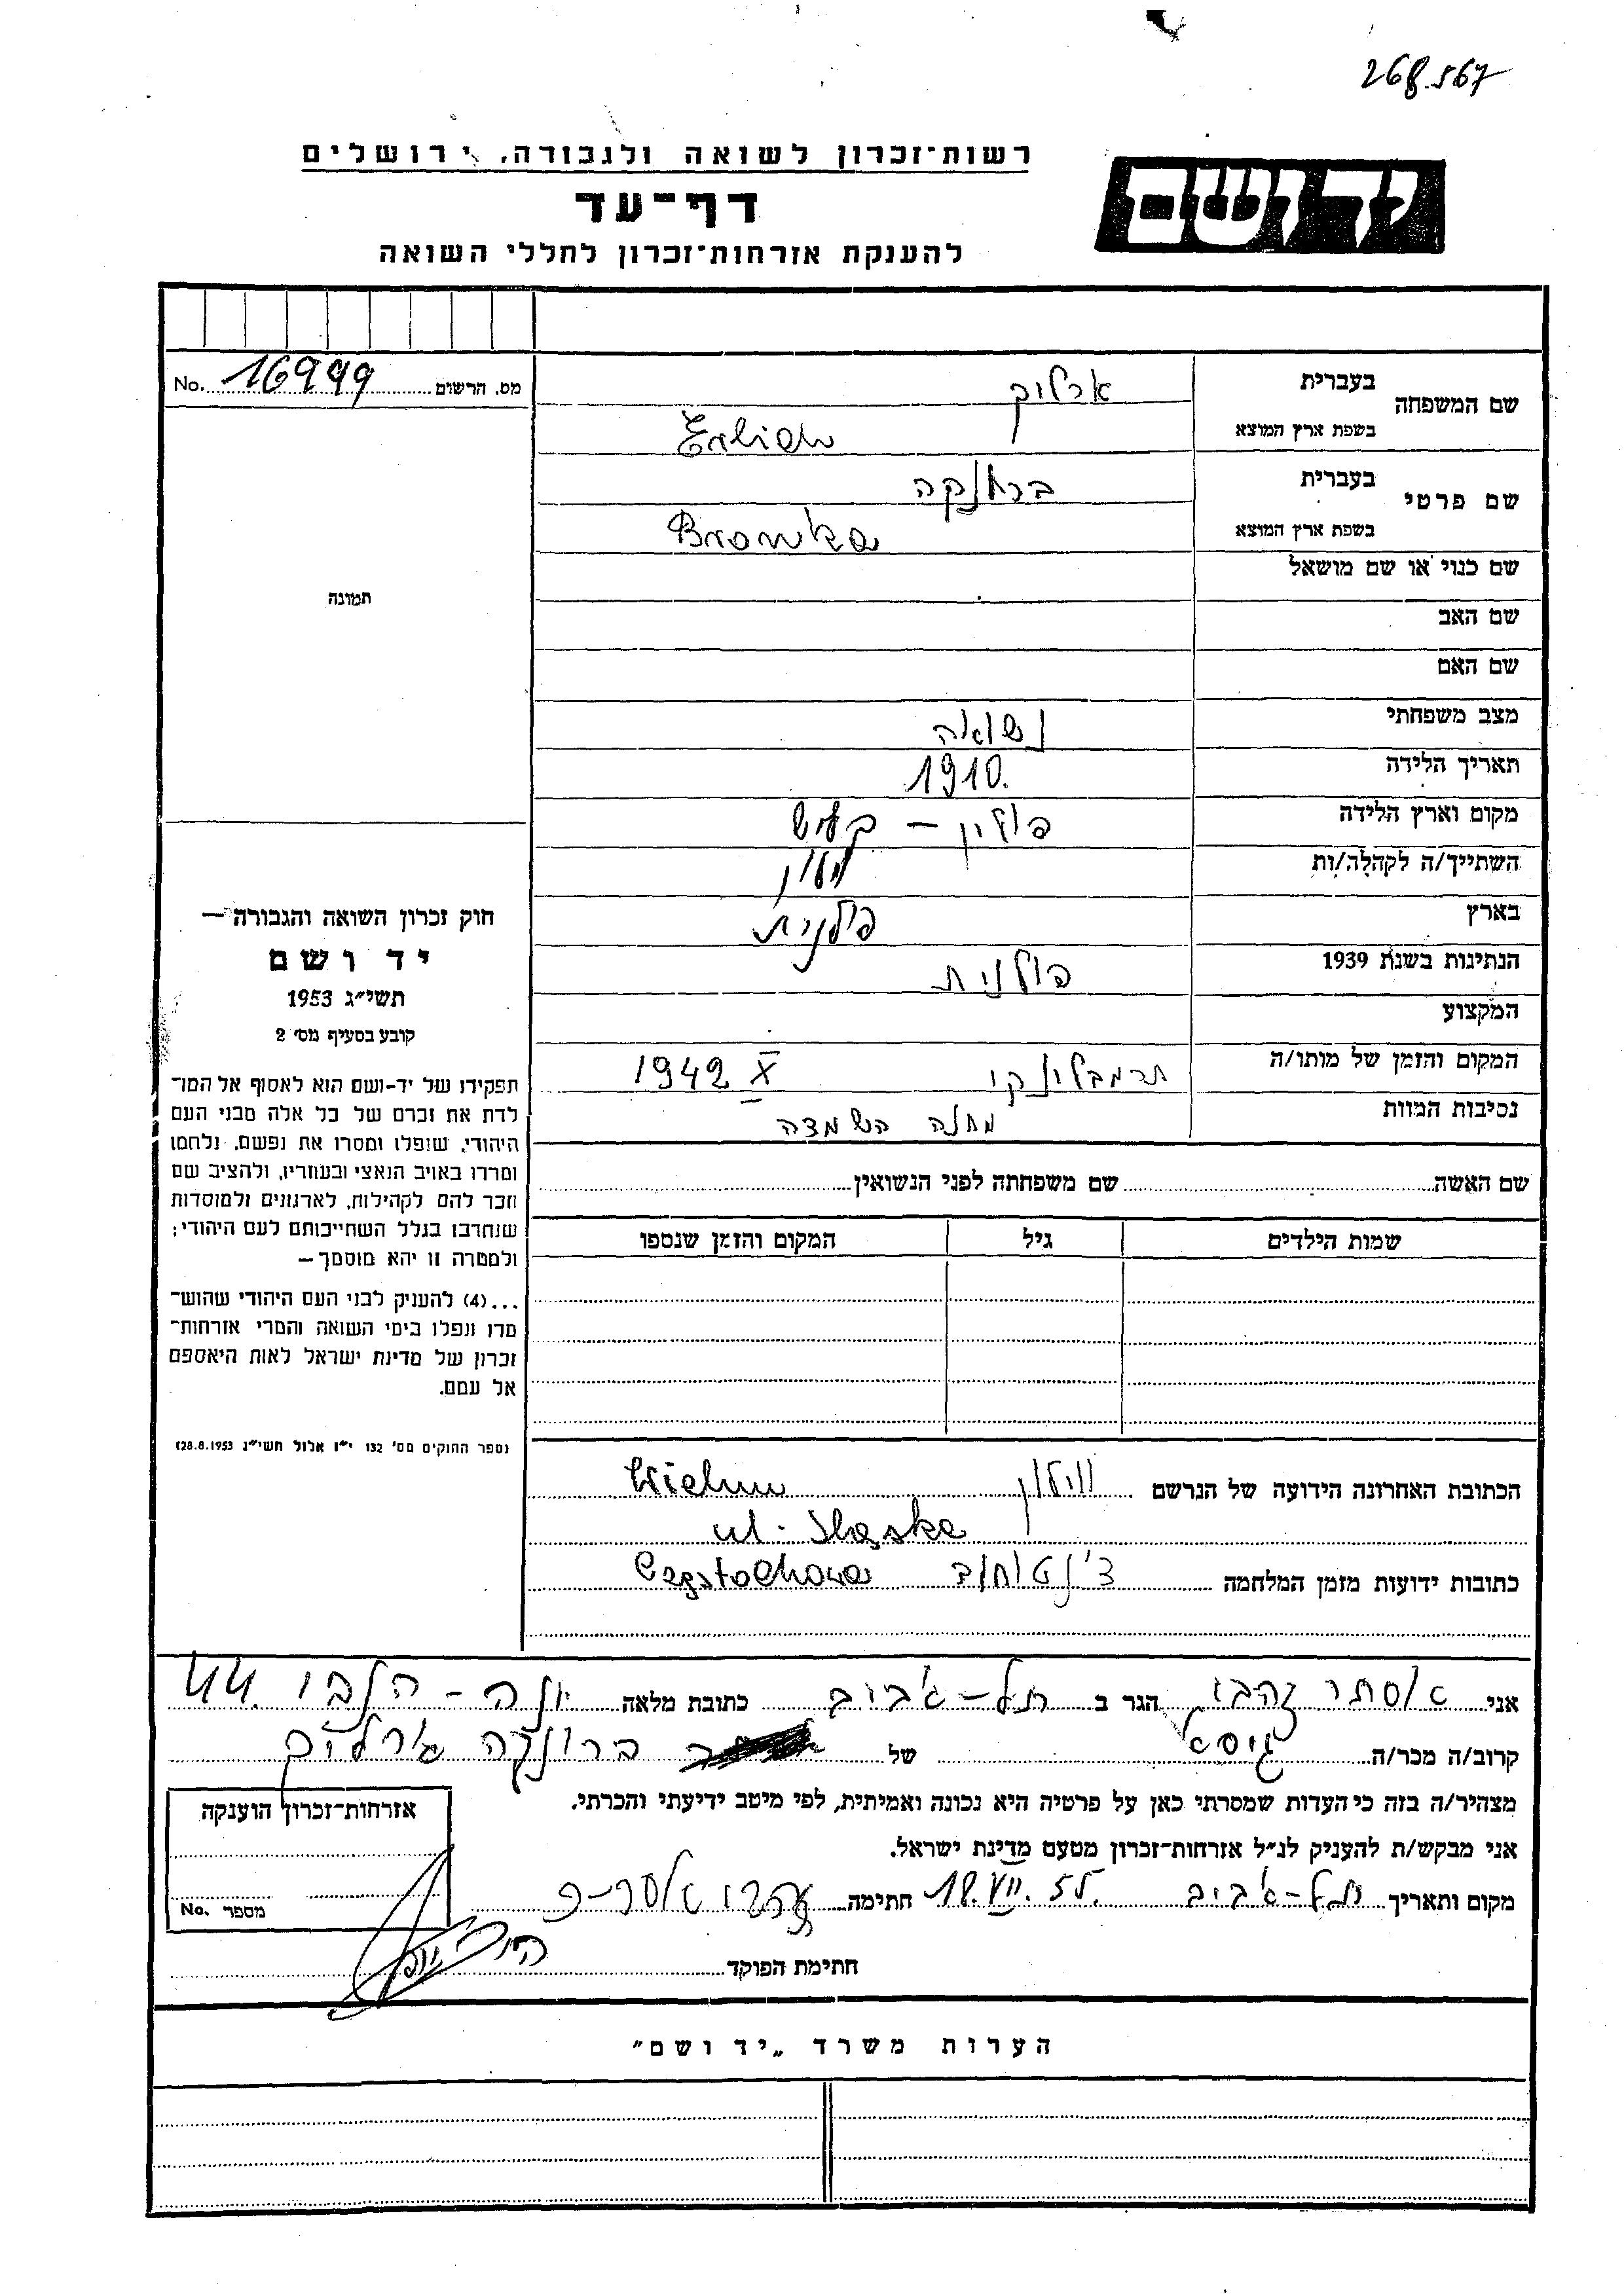 268.567
רשות־זכרון לשואה ולגבורה, ירושלים
יד ושם
דף־עד
להענקת אזרחות־זכרון לחללי השואה
מס. הרשום 16999 No.
שם המשפחה
בעברית ארליך
בשפת ארץ המוצא Erlich
שם פרטי
בעברית ברונקה
בשפת ארץ המוצא Bronka
שם כנוי או שם מושאל
שם האב
שם האם
מצב משפחתי נשואה
תאריך הלידה 1910.
מקום וארץ הלידה פולין –
השתייך/ה לקהלה/ות
בארץ פולנית
הנתינות בשנת 1939 פולנית
המקצוע
המקום והזמן של מותו/ה X 1942
נסיבות המוות מחנה השמדה
תמונה
חוק זכרון השואה והגבורה —
יד ושם
תשי״ג 1953
קובע בסעיף מס׳ 2
תפקידו של יד-ושם הוא לאסוף אל המו־
לדת את זכרם של כל אלה מבני העם
היהודי, שנפלו ומסרו את נפשם, נלחמו
ומרדו באויב הנאצי ובעוזריו, ולהציב שם
וזכר להם לקהילות, לארגונים ולמוסדות
שנחרבו בגלל השתייכותם לעם היהודי;
ולמטרה זו יהא מוסמך—
...(4) להעניק לבני העם היהודי שהוש־
מדו ונפלו בימי השואה והמרי אזרחות־
זכרון של מדינת ישראל לאות היאספם
אל עמם.
(ספר החוקים מס׳ 132 י״ז אלול תשי״ג 28.8.1953)
שם האשה שם משפחתה לפני הנשואין
שמות הילדים גיל המקום והזמן שנספו
הכתובת האחרונה הידועה של הנרשם ווילון Wielun
ul. Sląska
כתובות ידועות מזמן המלחמה צ'נסטוחוב Częstochowa
אני אסתר זהבי הגר ב תל-אביב כתובת מלאה יונה-הנביא 44
קרוב/ה מכר/ה גיסא של ברונקה ארליך
מצהיר/ה בזה כי העדות שמסרתי כאן על פרטיה היא נכונה ואמיתית, לפי מיטב ידיעתי והכרתי.
אני מבקש/ת להעניק לנ״ל אזרחות־זכרון מטעם מדינת ישראל.
מקום ותאריך תל-אביב 18.VII.55. חתימה
חתימת הפוקד
אזרחות־זכרון הוענקה
מספר No.
הערות משרד „יד ושם״